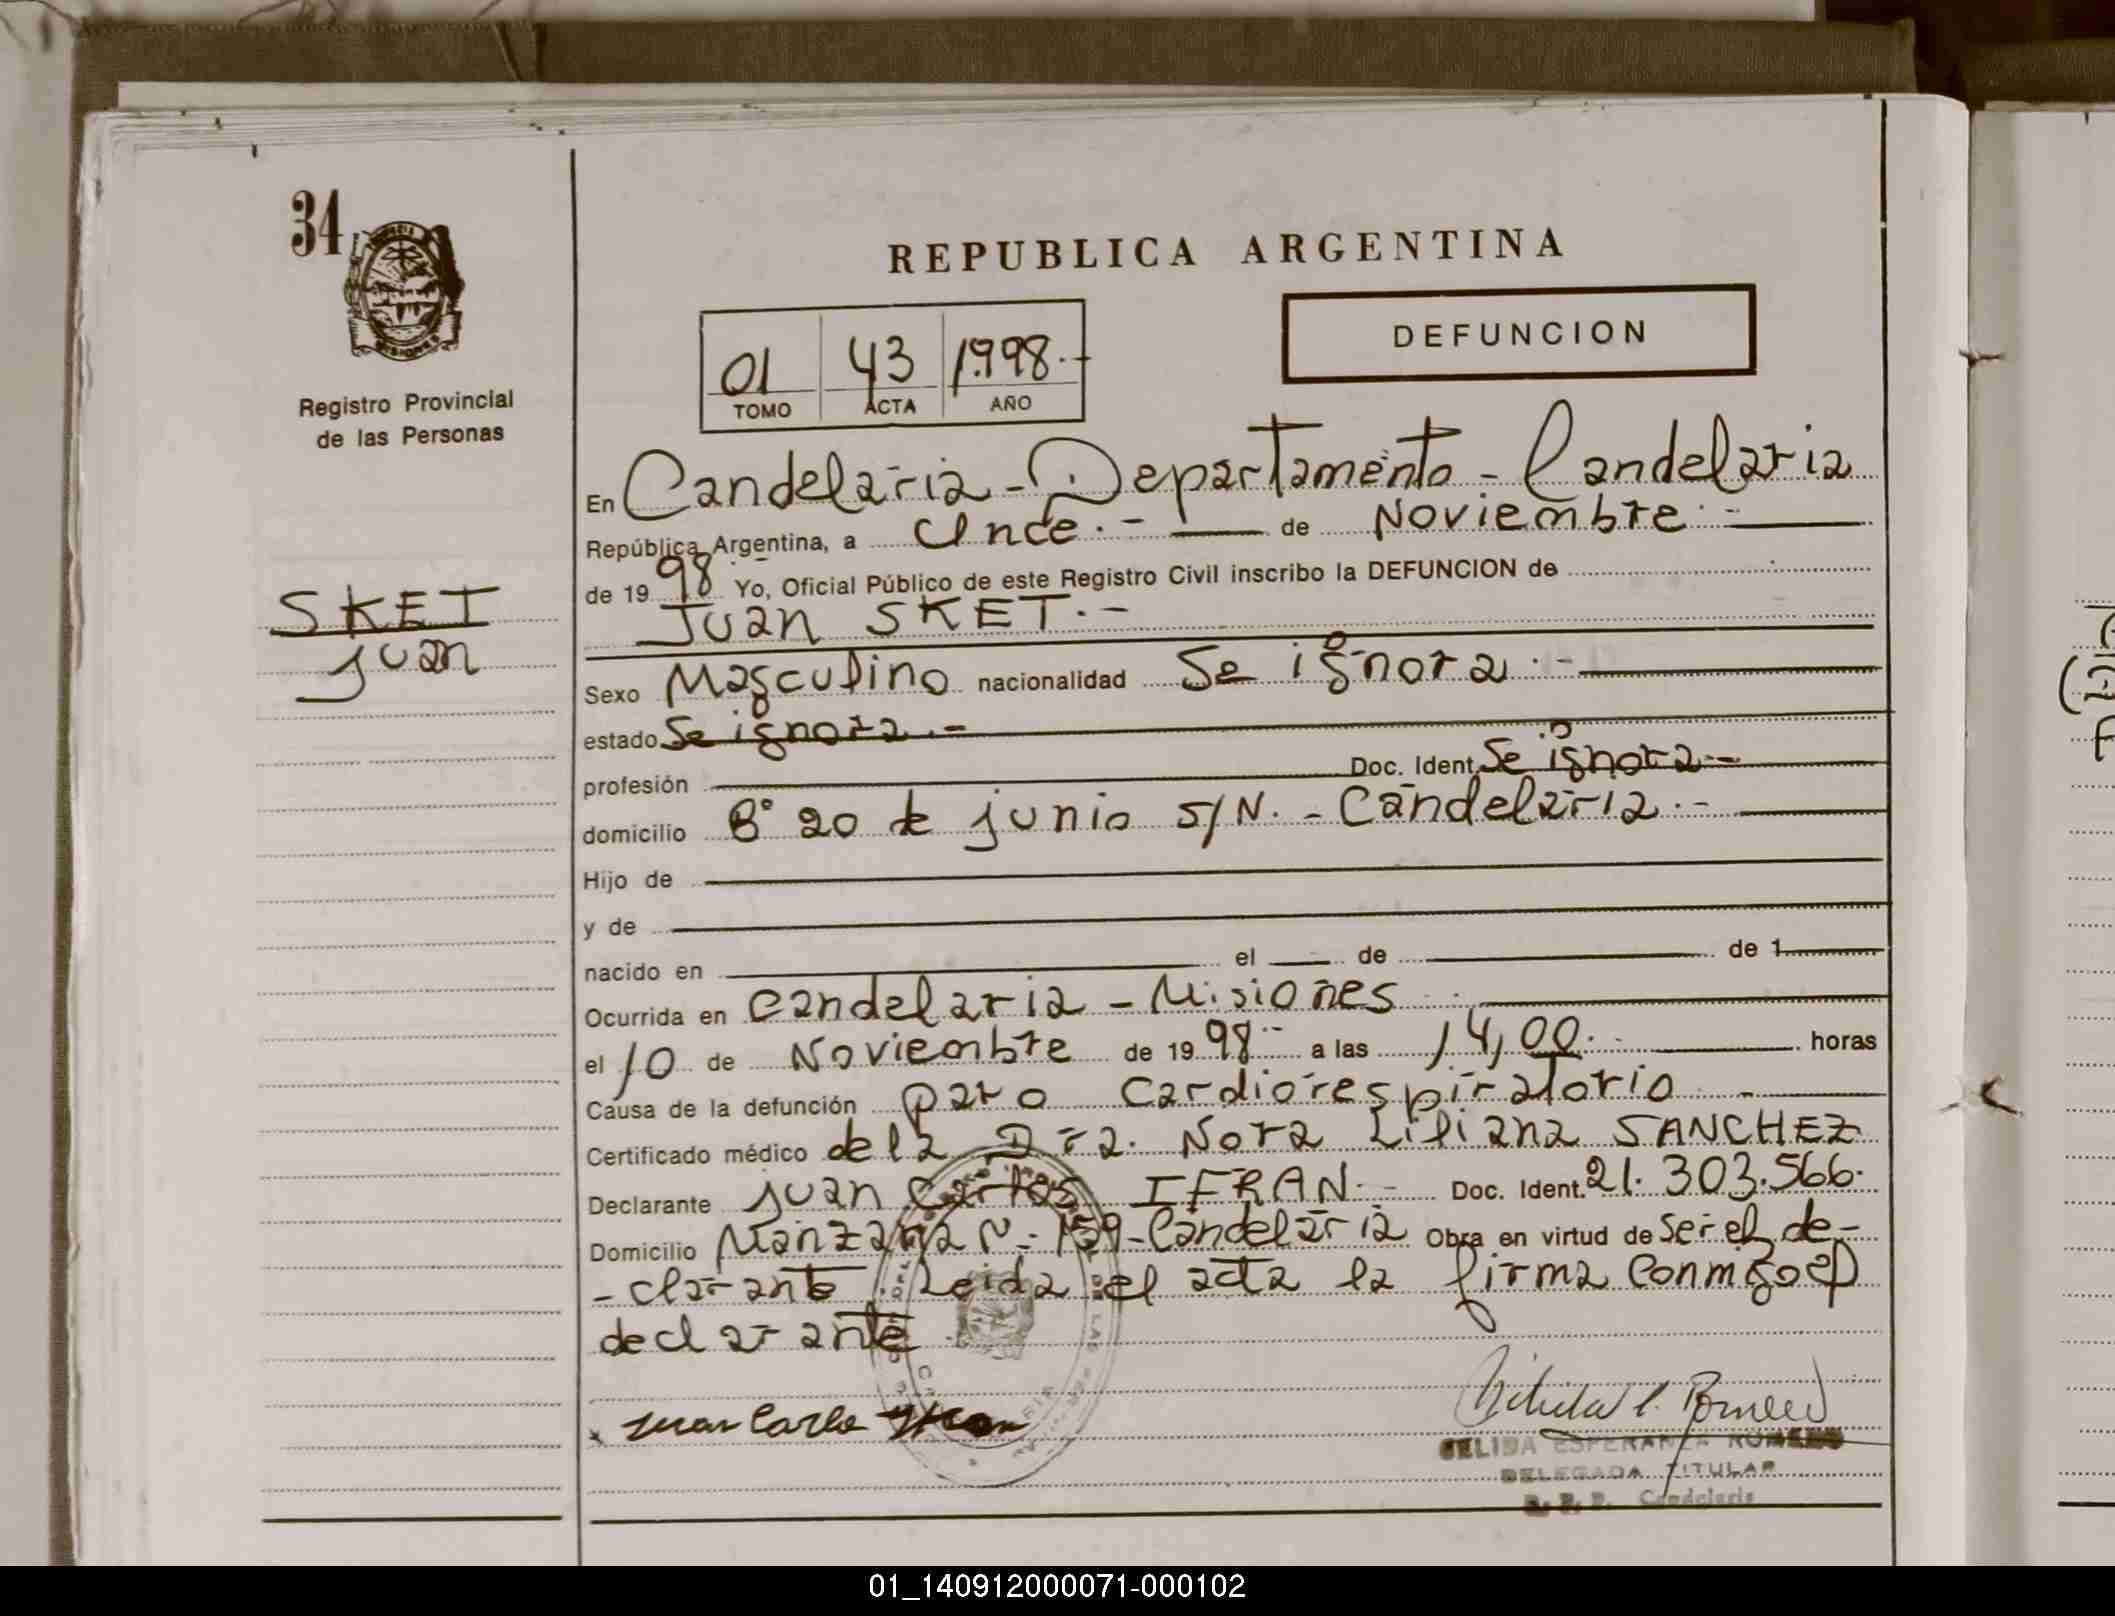 34
PROVINCIA
MISIONES
Registro Provincial
de las Personas
SKET
Juan
REPUBLICA ARGENTINA
01 43 1.998.-
TOMO ACTA AÑO
DEFUNCION
En Candelaria - Departamento - Candelaria
República Argentina, a Once.- de Noviembre.-
de 19 98.- Yo, Oficial Público de este Registro Civil inscribo la DEFUNCION de
Juan SKET.-
Sexo Masculino nacionalidad Se ignora.-
estado Se ignora.-
profesión Doc. Ident. Se ignora.-
domicilio B° 20 de junio S/N.- Candelaria.-
Hijo de
y de
nacido en el de de 1
Ocurrida en Candelaria - Misiones.
el 10 de Noviembre de 19 98.- a las 14,00.- horas
Causa de la defunción paro Cardiorespiratorio.-
Certificado médico de la Dra. Nora Liliana SANCHEZ
Declarante Juan Carlos IFRAN.- Doc. Ident. 21.303.566.
Domicilio Manzana N- 159-Candelaria Obra en virtud de ser el de-
-clarante. Leida el acta la firma Conmigo el
declarante
x Juan Carlo
CELIDA ESPERANZA ROMERO
DELEGADA TITULAR
R. P. P. Candelaria
01_140912000071-000102